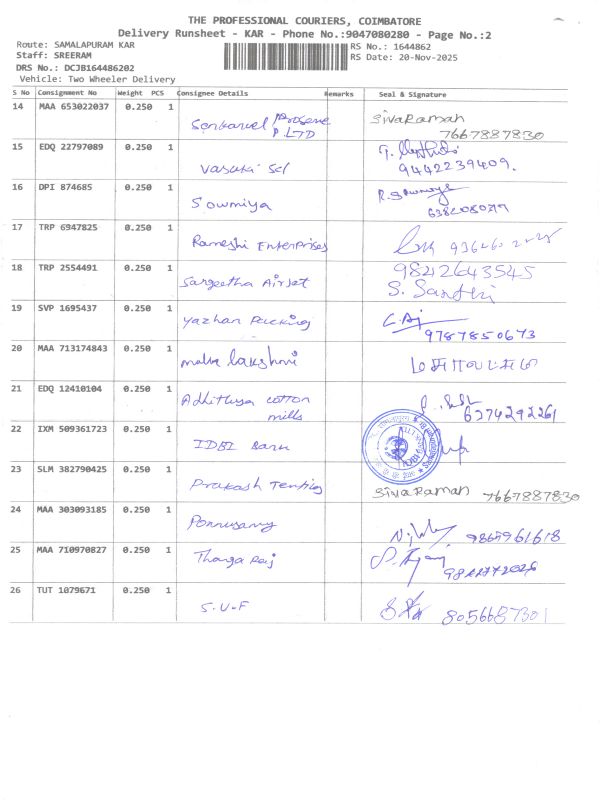 THE PROFESSIONAL COURIERS, COIMBATORE
Delivery Runsheet - KAR - Phone No.:9047080280 - Page No.:2
Route: SAMALAPURAM KAR RS No.: 1644862
Staff: SREERAM RS Date: 20-Nov-2025
DRS No.: DCJB164486202
Vehicle: Two Wheeler Delivery
S No Consignment No Weight PCS Consignee Details Remarks Seal & Signature
14 MAA 653022037 0.250 1 P.LTD Sivaramah 7667887830
15 EDQ 22797089 0.250 1 Vasuki 9442239409.
16 DPI 874685 0.250 1 Sowmiya
17 TRP 6947825 0.250 1 Enterprises
18 TRP 2554491 0.250 1 Sargeetha 9842643545
S. Santhi
19 SVP 1695437 0.250 1 Yazhan Packing 9787850673
20 MAA 713174843 0.250 1 lakshmi
21 EDQ 12410104 0.250 1 Adhithya cotton
mills 6374292261
22 IXM 509361723 0.250 1 IDBI Bank
23 SLM 382790425 0.250 1 Prakash Sivaramah 7667887830
24 MAA 303093185 0.250 1 Ponnusamy
25 MAA 710970827 0.250 1 Thanga Raj
26 TUT 1079671 0.250 1 S.U.F 8056687301